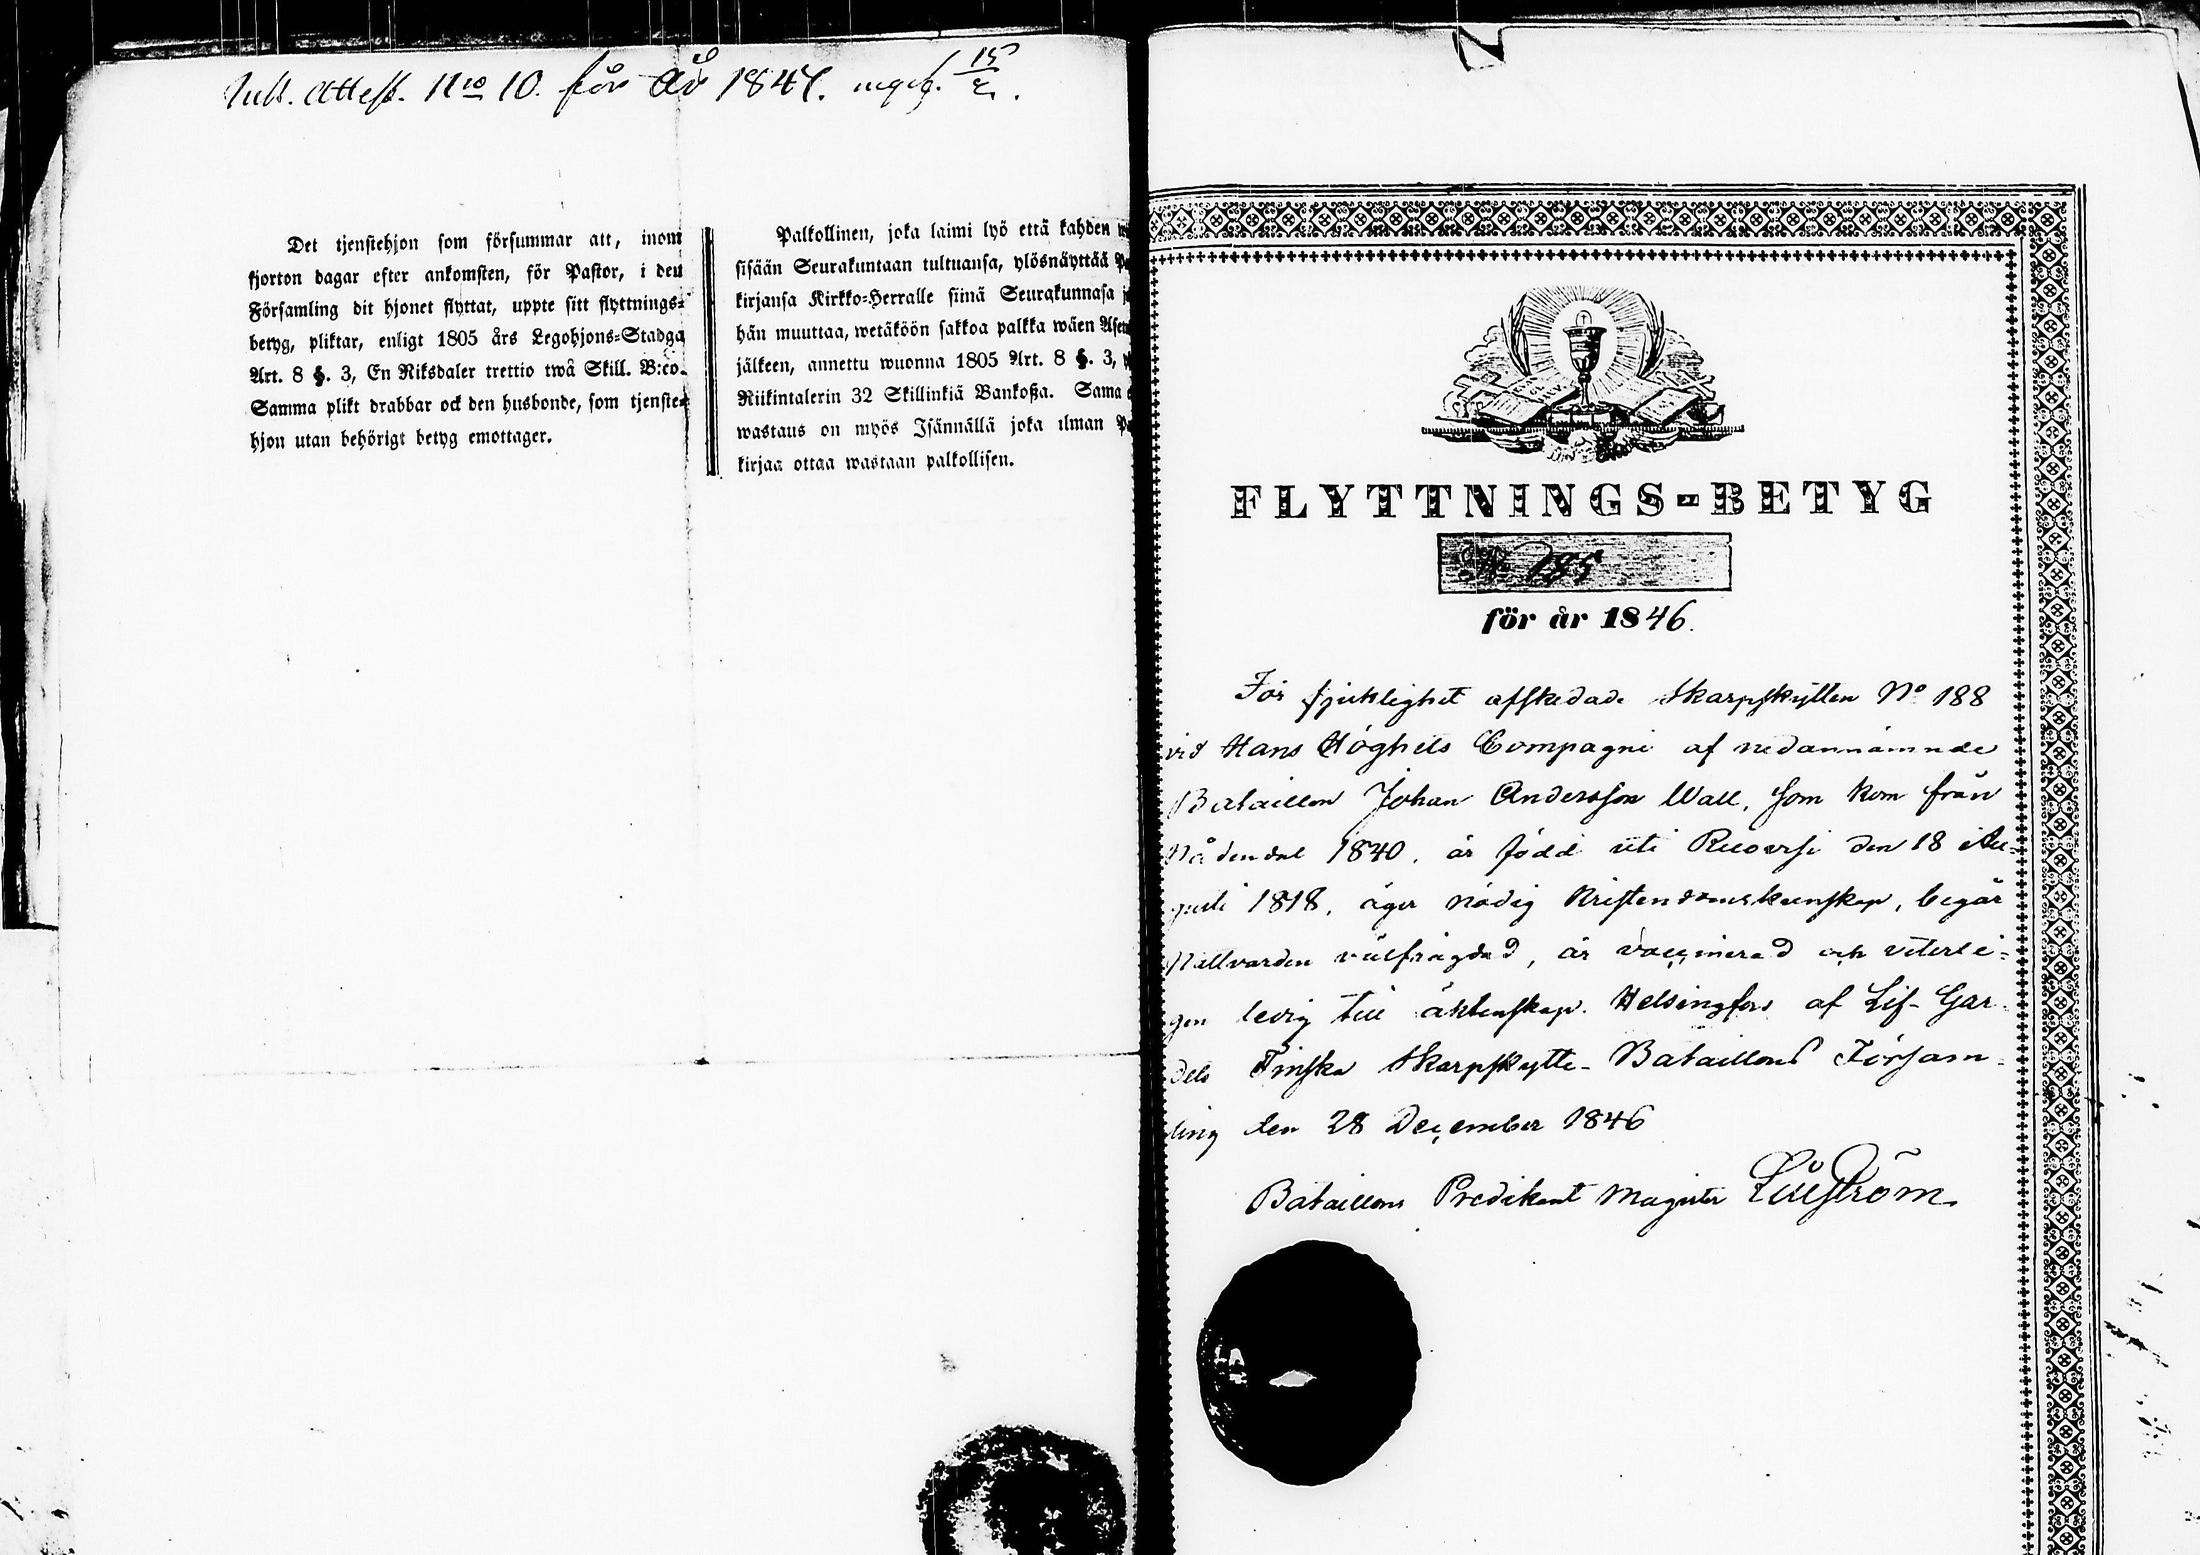 Attest. No 10. för År 1847. 15
Det tjenstehjon som försummar att, inom
fjorton dagar efter ankomsten, för Pastor, i den
Församling dit hjonet flyttat, uppte sitt flyttnings-
betyg, pliktar, enligt 1805 års Legohjons-Stadga
Art. 8 §. 3, En Riksdaler trettio twå Skill. B:co.
Samma plikt drabbar ock den husbonde, som tjenste-
hjon utan behörigt betyg emottager.
Palkollinen, joka laimi lyö että kahden
sisään Seurakuntaan tultuansa, ylösnäyttää
kirjansa Kirkko-Herralle siinä Seurakunnasa
hän muuttaa, wetäköön sakkoa palkka wäen
jälkeen, annettu wuonna 1805 Art. 8 §. 3,
Riikintalerin 32 Skillinkiä Bankoßa. Sama
wastaus on myös Isännällä joka ilman
kirjaa ottaa wastaan palkollisen.
FLYTTNINGS-BETYG
No 185
för år 1846.
För sjuklighet afskedade Skarpskytten No 188
vid Hans Compagni af nedannämnde
Bataillon Johan Andersson Wall, som kom från
Nådendal 1840, är född uti den 18 Au-
gusti 1818, äger nödig Kristendomskunskap, begår
Nattvarden välfrägdad, är vaccinerad och veterli-
gen ledig till äktenskap. Helsingfors af Lif-Gar-
dets Finska Skarpskytte-Bataillons Försam-
ling den 28 December 1846
Bataillons Predikant Magister